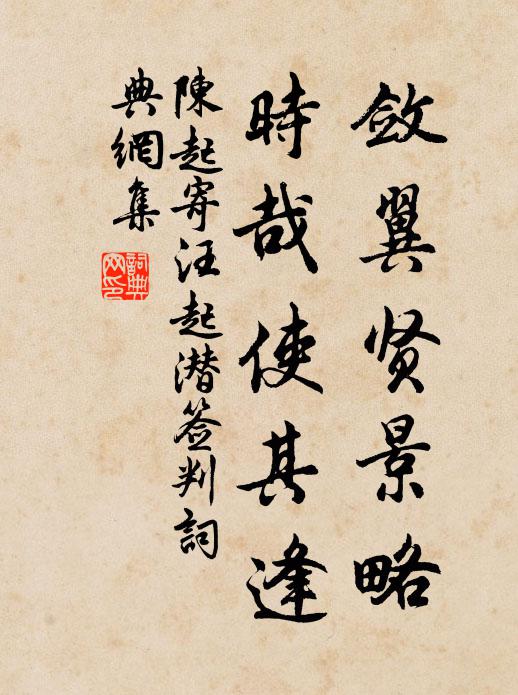 斂翼贤景略
時哉使其逢
陳起寄汪起潜签判詞
典網集
詞典网印